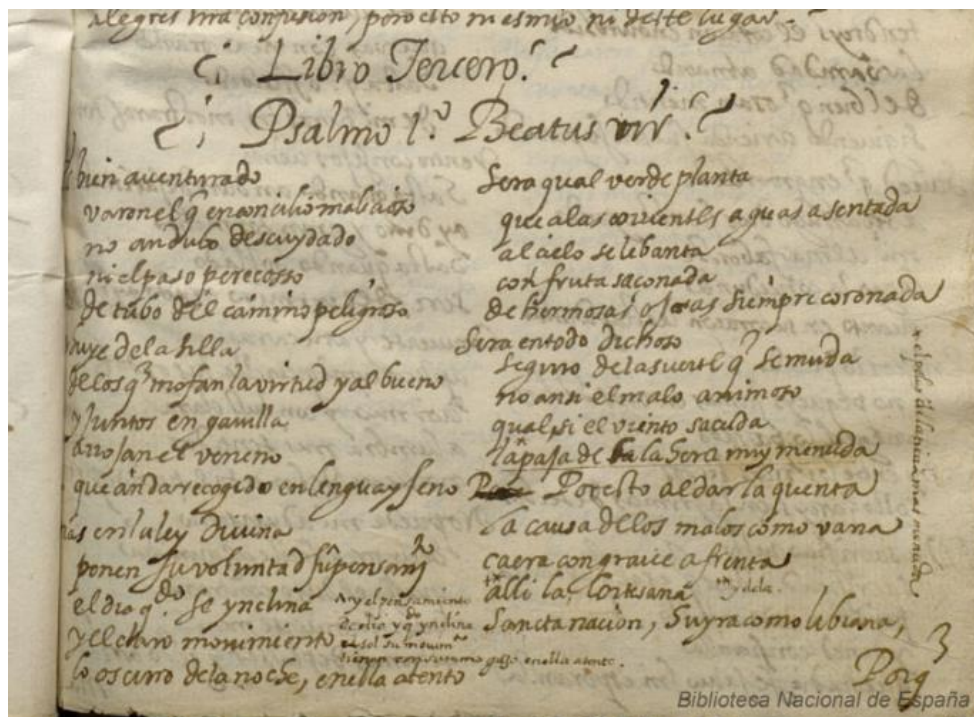 alegres una confusion, por esto mesmo ni deste lugar.
Libro Tercero.
Psalmo 1.º Beatus vir.
bien aventurado
varon el q̃ en concilio malicioso
no andubo descuydado
ni el paso perecosso
detubo del camino peligroso
huye de la silla
de los q̃ mofan la virtud y al bueno
y juntos en gavilla
arrojan el veneno
que anda recogido en lengua y seno
mas en tu ley divina
ponen su voluntad su pensamiº
el dia q̃do se ynclina
y el claro movimiento
lo oscuro de la noche, en ella atento
y el pensamiento
ynclina
el sol su movimº
en ella atento.
Sera qual verde planta
que a las corrientes aguas asentada
al cielo se libanta
con fruta saconada
de hermosas ojas siempre coronada
Sera en todo dichoso
seguro de la suerte q̃ se muda
no ansi el malo animoso
qual si el viento sacuda
la paja de la hera muy menuda
Por esto al dar la quenta
la causa de los malos como vana
caera con graice afrenta
alli la, cortesana
y de la.
Sancta nacion, suyra como libiana,
3
Porq
Biblioteca Nacional de España